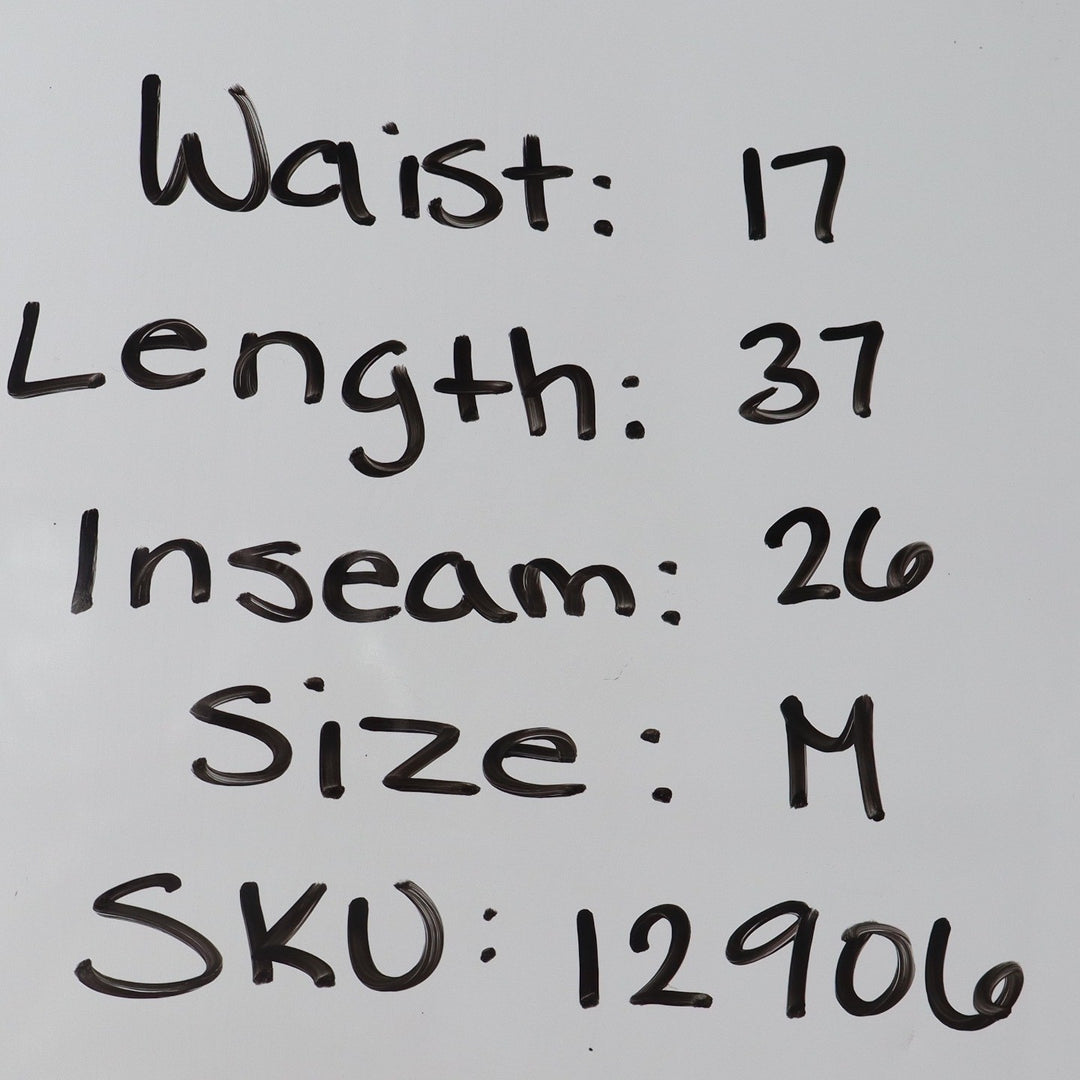 Waist: 17
Length: 37
Inseam: 26
Size: M
SKU: 12906